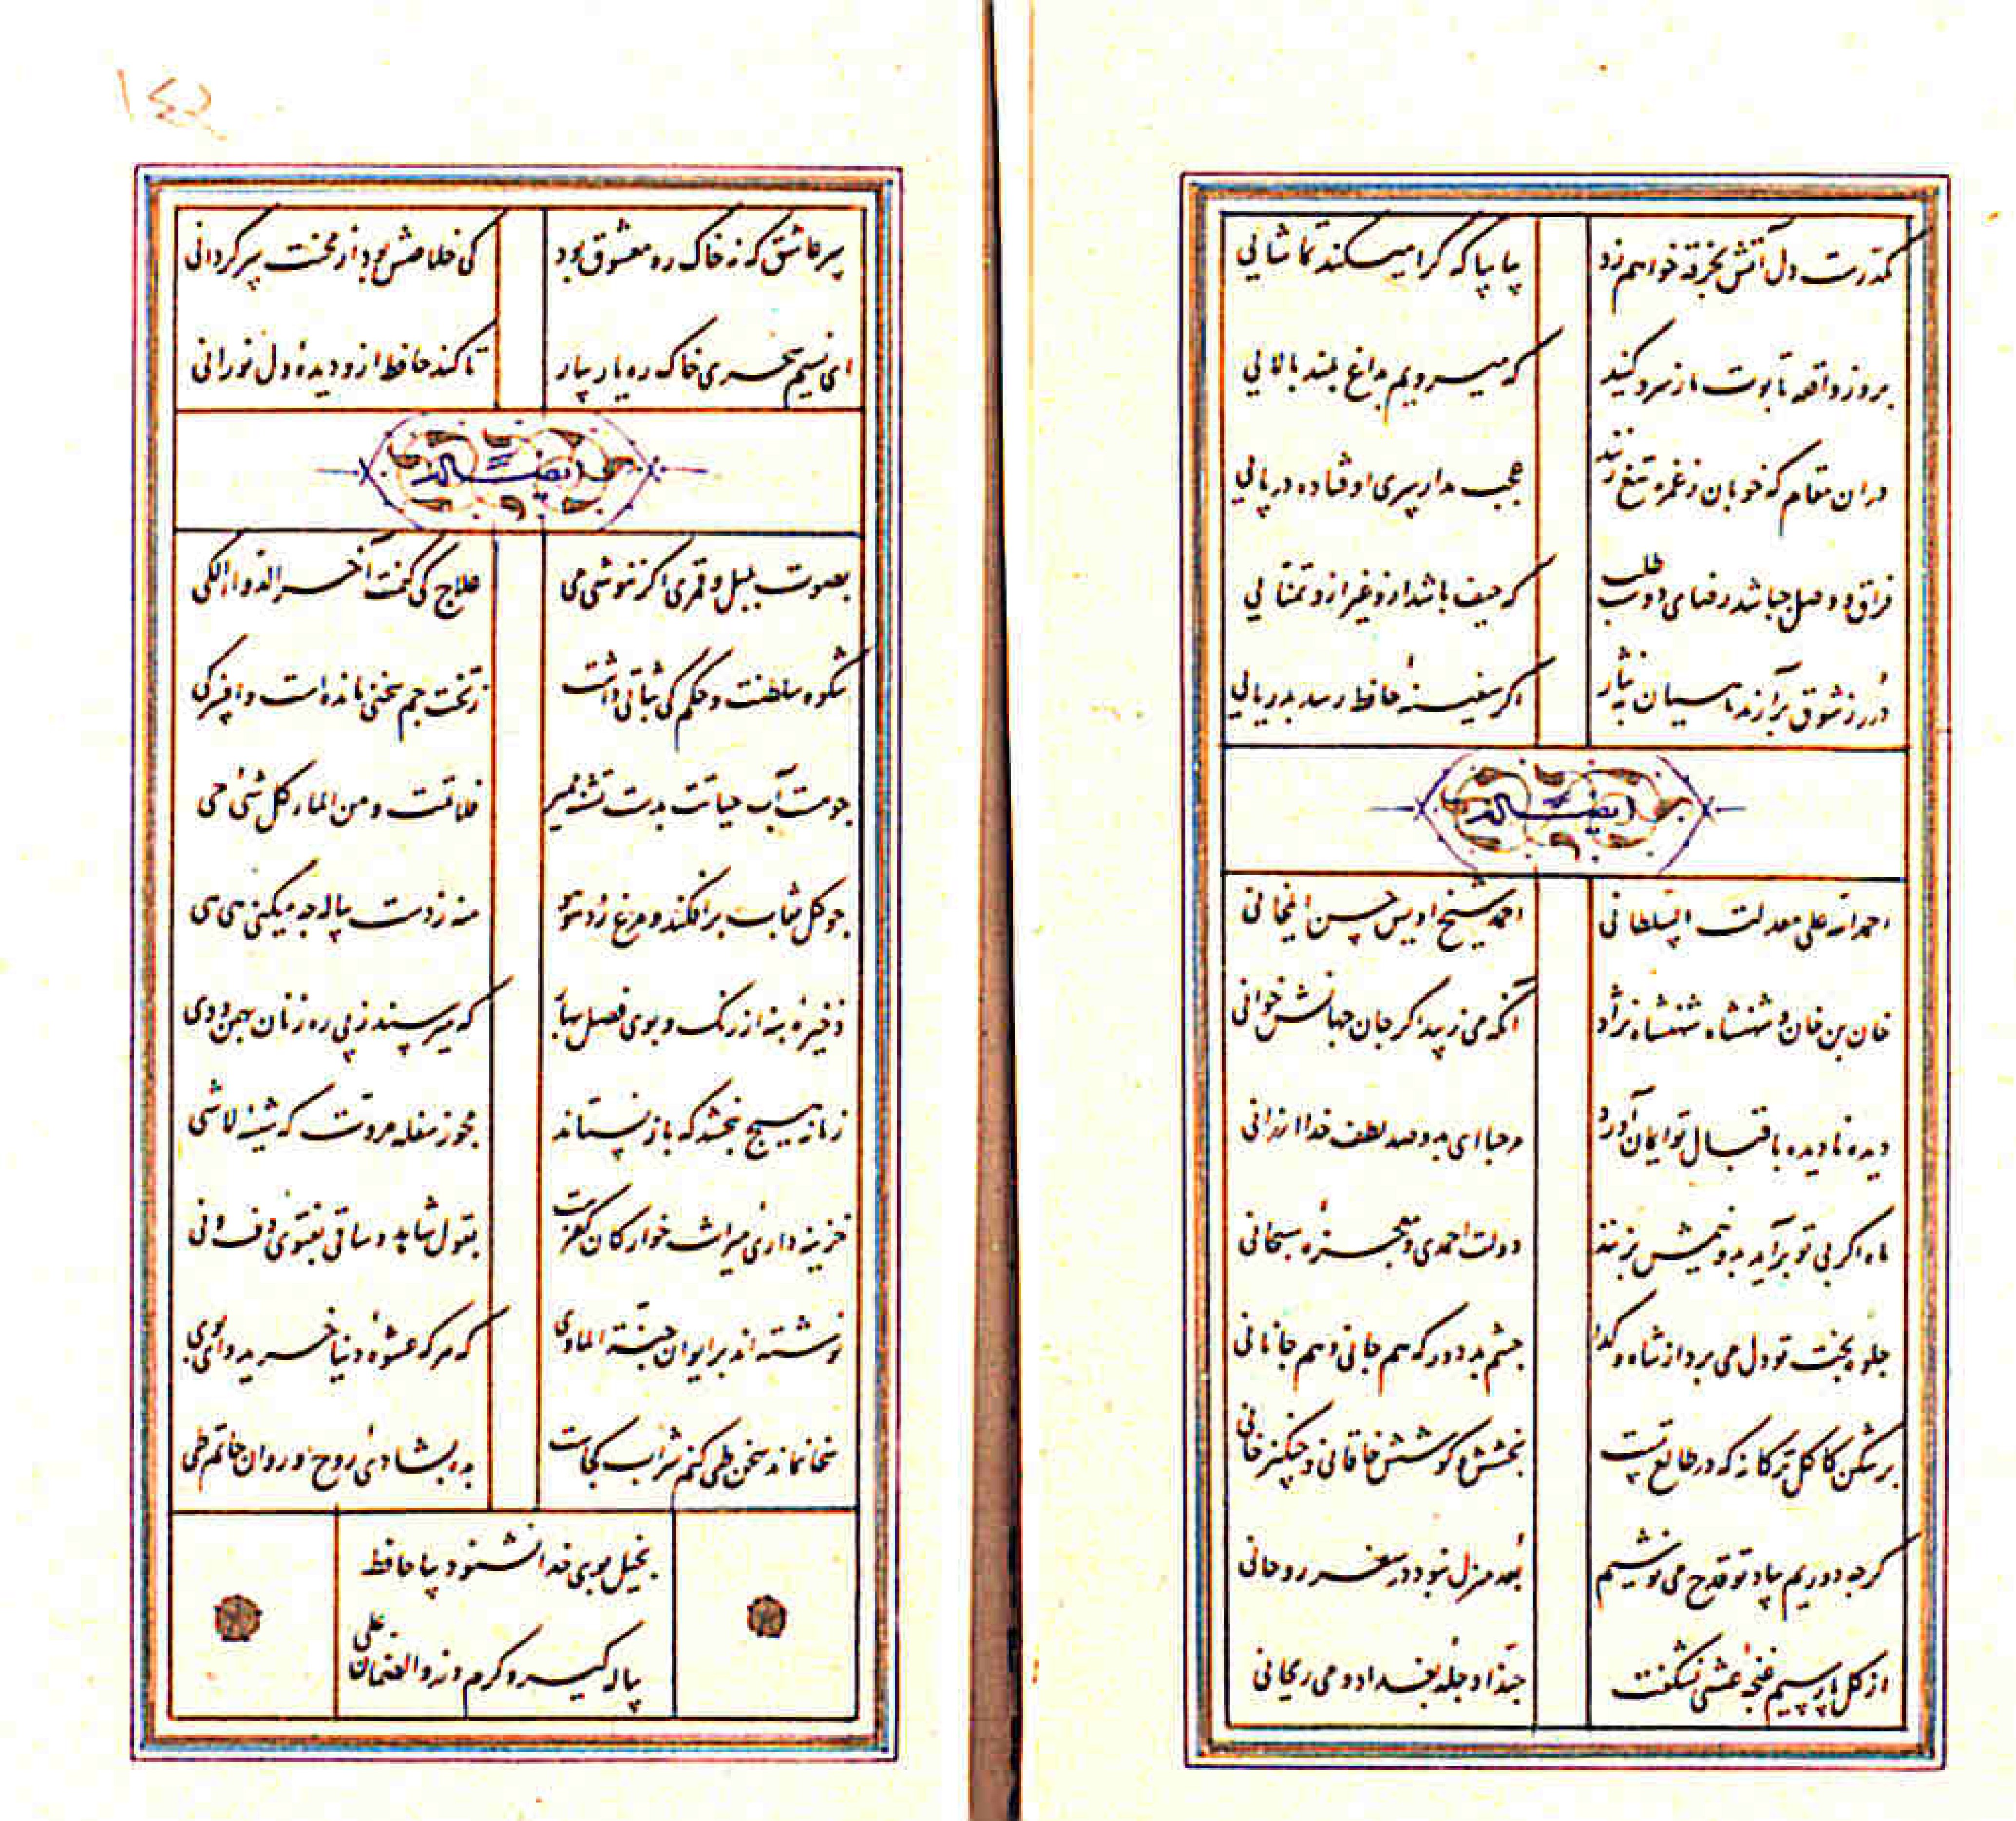 مکدرست دل آتش بخرقه خواهم زد بیا بیا که کرا میکند تماشایی
بروز واقعه تابوت ما ز سرو کنید که میرویم بداغ بلند بالایی
دران مقام که خوبان ز غمزه تیغ زنند عجب مدار سری اوفتاده در پایی
فراق و وصل چباشد رضای دوست طلب که حیف باشد ازو غیر ازو تمنایی
درر ز شوق برآرند ماهیان به نثار اکر سفینهٔ حافظ رسد بدریایی
ایضاً له
احمد الله علی معدلت السلطانی احمد شیخ اویس حسن ایلخانی
خان بن خان و شهنشاه شهنشاه نژاد آنکه می زیبد اکر جان جهانش خوانی
دیده نادیده باقبال تو ایمان آورد مرحبا ای به دو صد لطف خدا ارزانی
ماه اکر بی تو برآید بدو نیمش بزنند دولت احمدی و معجزهٔ سبحانی
جلوه بخت تو دل می برد از شاه و کدا چشم بد دور که هم جانی و هم جانانی
برشکن کاکل ترکانه که در طالع تست بخشش و کوشش خاقانی و چنکیز خانی
کرچه دوریم بیاد تو قدح می نوشیم بعد منزل نبود در سفر روحانی
از کل پارسیم غنچهٔ عیشی نشکفت حبذا دجله بغداد و می ریحانی
۱۴۲
سر عاشق که نه خاک ره معشوق بود کی خلاصش بود از محنت سرکردانی
ای نسیم سحری خاک ره یار بیار تا کند حافظ ازو دیدهٔ دل نورانی
ایضاً له
بصوت بلبل و قمری اکر ننوشی می علاج کی کنمت آخر الدوا الکی
شکوه سلطنت و حکم کی ثباتی داشت ز تخت جم سخنی مانده است و افسر کی
چو هست آب حیاتت بدست تشنه ممیر فلا تمت و من الماء کل شیٔ حی
چو کل نقاب برافکند و مرغ زد هو هو منه ز دست پیاله چه میکنی هی هی
ذخیرهٔ بنه از رنک و بوی فصل بهار که میرسند ز پی ره زنان بهمن و دی
زمانه هیچ نبخشد که باز نستاند مجوز سفله مروت که شیئه لاشی
خزینه داری میراث خوارکان کفرست بقول شاهد و ساقی بفتوی دف و نی
نوشته اند بر ایوان جنة الماوی که هر که عشوهٔ دنیا خرید وای بوی
سخا نماند سخن طی کنم شراب کجاست بده بشادی روح و روان حاتم طی
بخیل بوی خدا نشنود بیا حافظ
پیاله کیر و کرم ورز والضمان علی